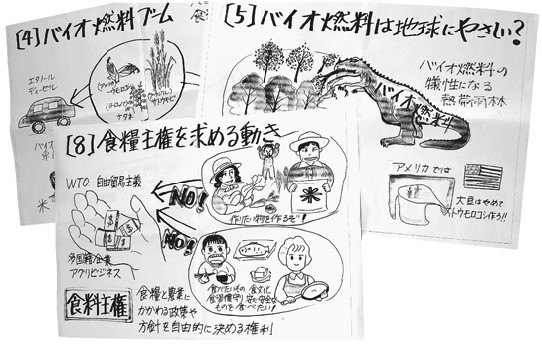 [4]バイオ燃料ブム
エタノール
ディーゼル
バイオ
米
[5]バイオ燃料は地球にやさしい?
バイオ燃料の
犠性になる
熱帯雨林
バイオ燃料
アメリカでは
大豆はやめて
トウモロコシ作ろう!!
[8]食糧主権を求める動き
WTO 自由貿易主義
NO!
NO!
米
作りたい物を作るぞ!
多国籍企業
アグリビジネス
食べたいもの
食習慣守り
食文化
安心安全な
ものを食べたい!
食料主権
食糧と農業に
かかわる政策や
方針を自由的に決める権利